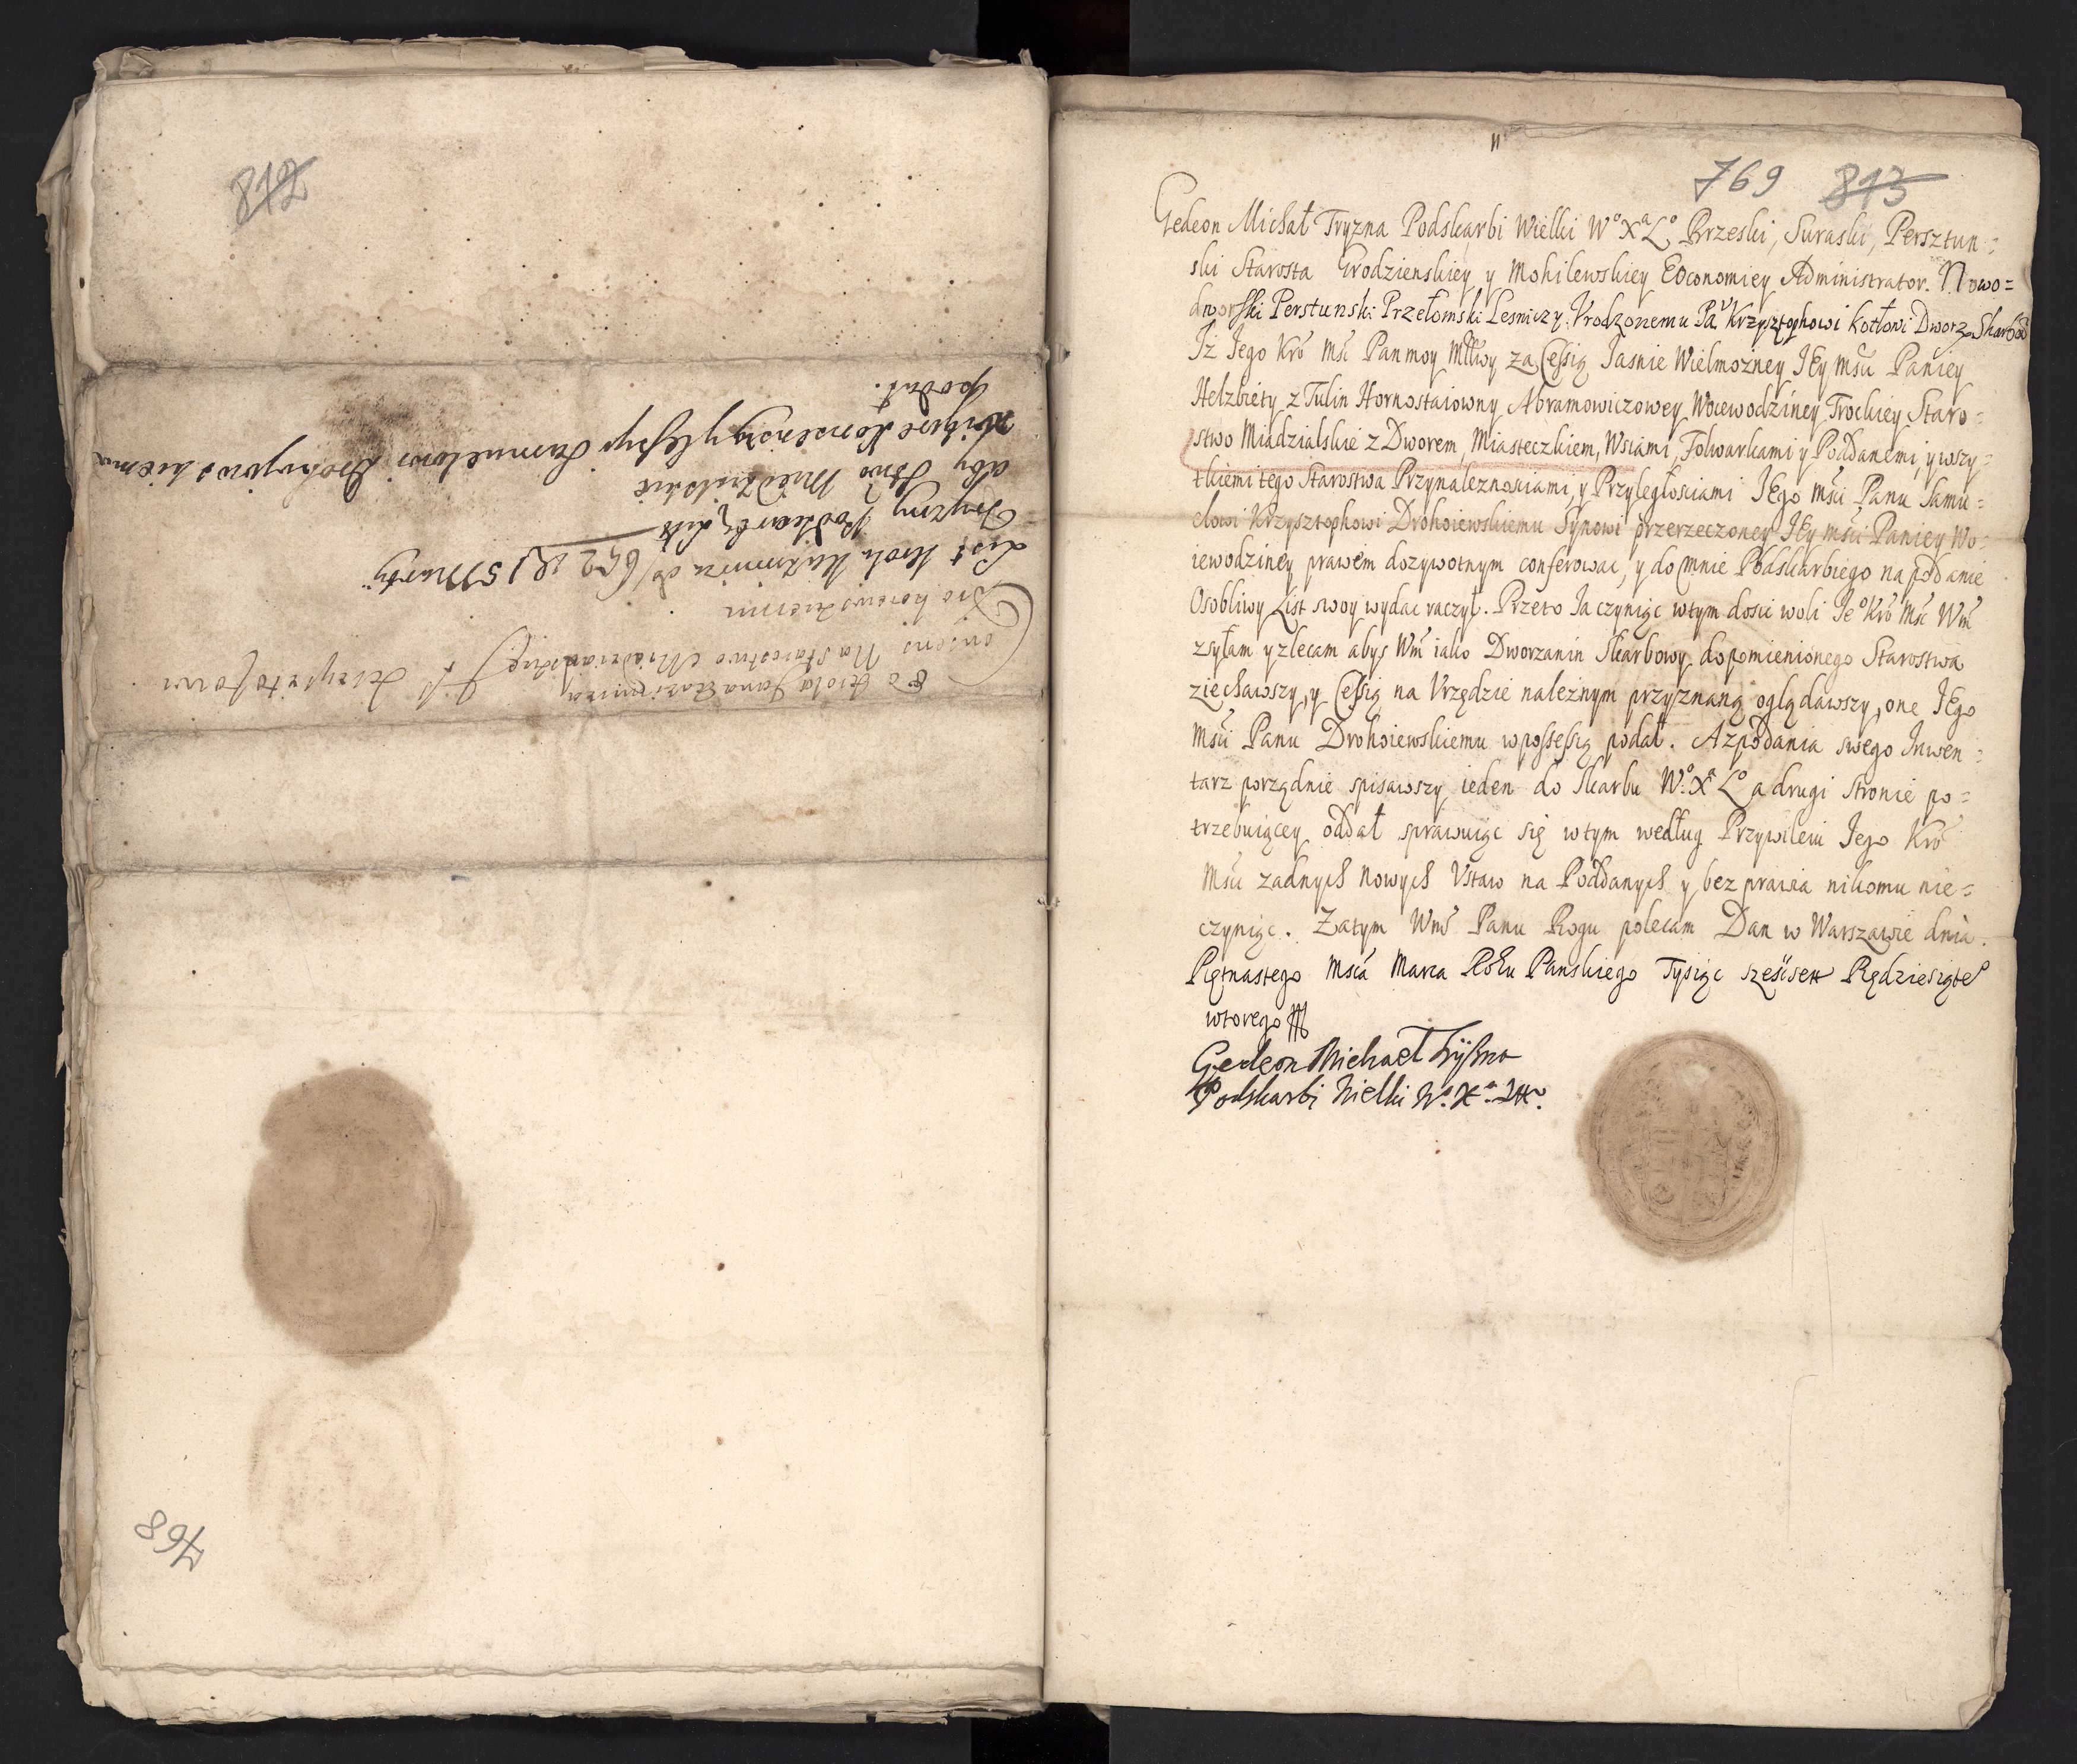 812
Od Krola Jana Kazimierza
Consens Na Starostwo Miadzialskie Krzysztofowi
Drohoiewskiemu
List Krola Kazimierza do
Tryzny Podskarb Lit
aby Stwo Miedzialskie
Samuelowi Drohojowskiemu
podał.
768
769 813
Gedeon Michał Tryzna Podskarbi Wielki W° Xª L° Brzeski, Suraski, Persztun-
ski Starosta Grodzienskiey y Mohilewskiey Eoconomiey Administrator. Nowo=
dworski Perstunski Przełomski Lesniczy. Vrodzonemu Pa Krzysztophowi Kotłowi Dworz. Skarbo
Iż Jego Kró Mć Pan moy Młwy za Cessią Iasnie Wielmożney IEy Mśći Paniey
Helzbiety z Tulin Hornostaiowny Abramowiczowey Woiewodziney Trockiey Staro=
stwo Miadzialskie z Dworem, Miasteczkiem, Wsiami, Folwarkami y Poddanemi, y wszy=
tkiemi tego Starostwa Przynaleznosciami, y Przyległosciami IEgo Mśći Panu Samu=
elowi Krzysztophowi Drohoiewskiemu Synowi przerzeczoney IEy Mśći Paniey Wo=
iewodziney prawem dozywotnym conferowac, y do mnie Podskarbiego na podanie
Osobliwy List swoy wydac raczył. Przeto Ia czyniąc w tym dosic woli Je° Kró Mśc Wm
zsyłam y zlecam abys Wm iako Dworzanin Skarbowy do pomienionego Starostwa
ziechawszy, y Cessią na Vrzędzie należnym przyznaną oglądawszy, one IEgo
Mśći Panu Drohoiewskiemu w possessią podał. A z podania swego Inwen=
tarz porządnie spisawszy ieden do Skarbu W° Xª L° a drugi stronie po=
trzebuiącey oddał sprawuiąc się w tym według Przywileiu Jego Kró
Mśći zadnych nowych Vstaw na Poddanych y bez prawia nikomu nie=
czyniąc. Zatym Wm Panu Bogu polecam Dan w Warszawie dnia
Piętnastego Mscá Marca Roku Panskiego Tysiąc sześćset Piędziesiąte°
wtorego
Gedeon Michael Tryzna
Podskarbi Wielki W° Xª Litt°.